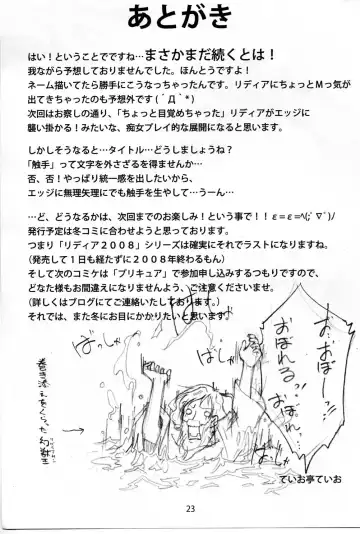 あとがき
はい！ということでですね…まさかまだ続くとは！
我ながら予想しておりませんでした。ほんとうですよ！
ネーム描いてたら勝手にこうなっちゃったんです。リディアにちょっとMっ気が
出てきちゃったのも予想外です (´Д｀*)
次回はお察しの通り、「ちょっと目覚めちゃった」リディアがエッジに
襲い掛かる！みたいな、痴女プレイ的な展開になると思います。
しかしそうなると…タイトル…どうしましょうね？
「触手」って文字を外さざるを得ませんか…
否、否！やっぱり統一感を出したいから、
エッジに無理矢理にでも触手を生やして…うーん…
…ど、どうなるかは、次回までのお楽しみ！という事で！！ε=ε=ヘ(;ﾟ∇ﾟ)ﾉ
発行予定は冬コミに合わせようと思っております。
つまり「リディア２００８」シリーズは確実にそれでラストになりますね。
(発売して１日も経たずに２００８年終わるもん)
そして次のコミケは「プリキュア」で参加申し込みするつもりですので、
どなた様もお間違えになりませんよう、ご注意くださいませ。
(詳しくはブログにてご連絡いたしております。)
それでは、また冬にお目にかかりたいと思います。
おぼー
おぼれる…おぼれ…
ばっしゃ
ばっしゃ
ばっしゃ
ばっしゃ
巻き添えをくらった幻獣王
ていお亭ていお
23